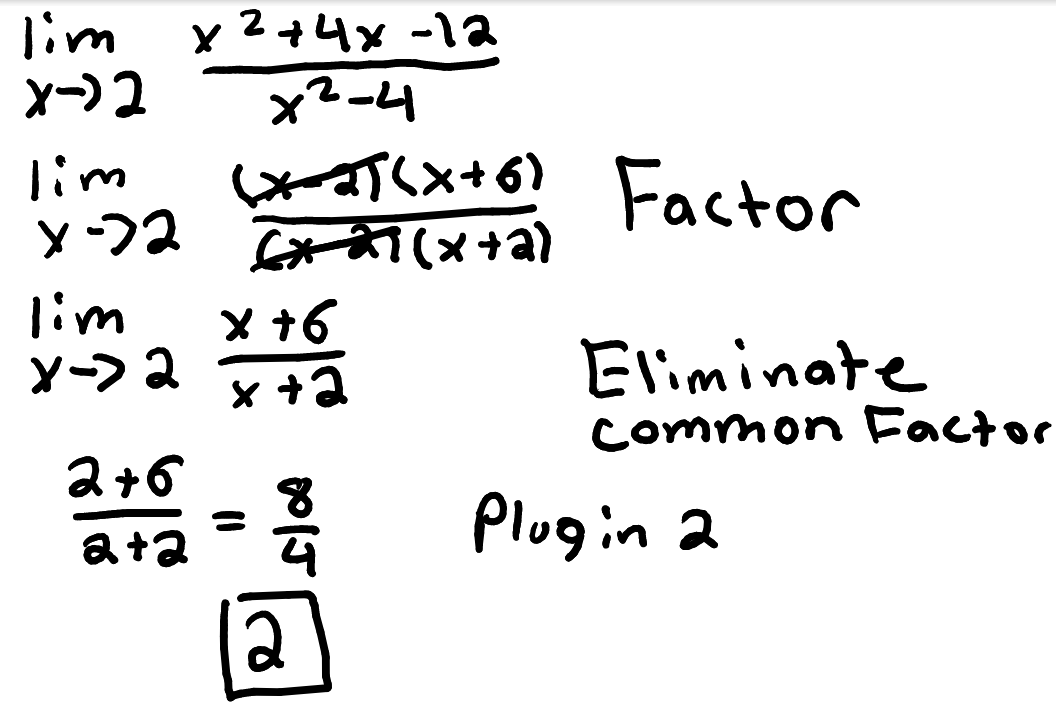 lim x→2 (x²+4x-12)/(x²-4)
lim x→2 ((x-2)(x+6))/((x-2)(x+2)) Factor
lim x→2 (x+6)/(x+2) Eliminate common Factor
(2+6)/(2+2) = 8/4 Plug in 2
2